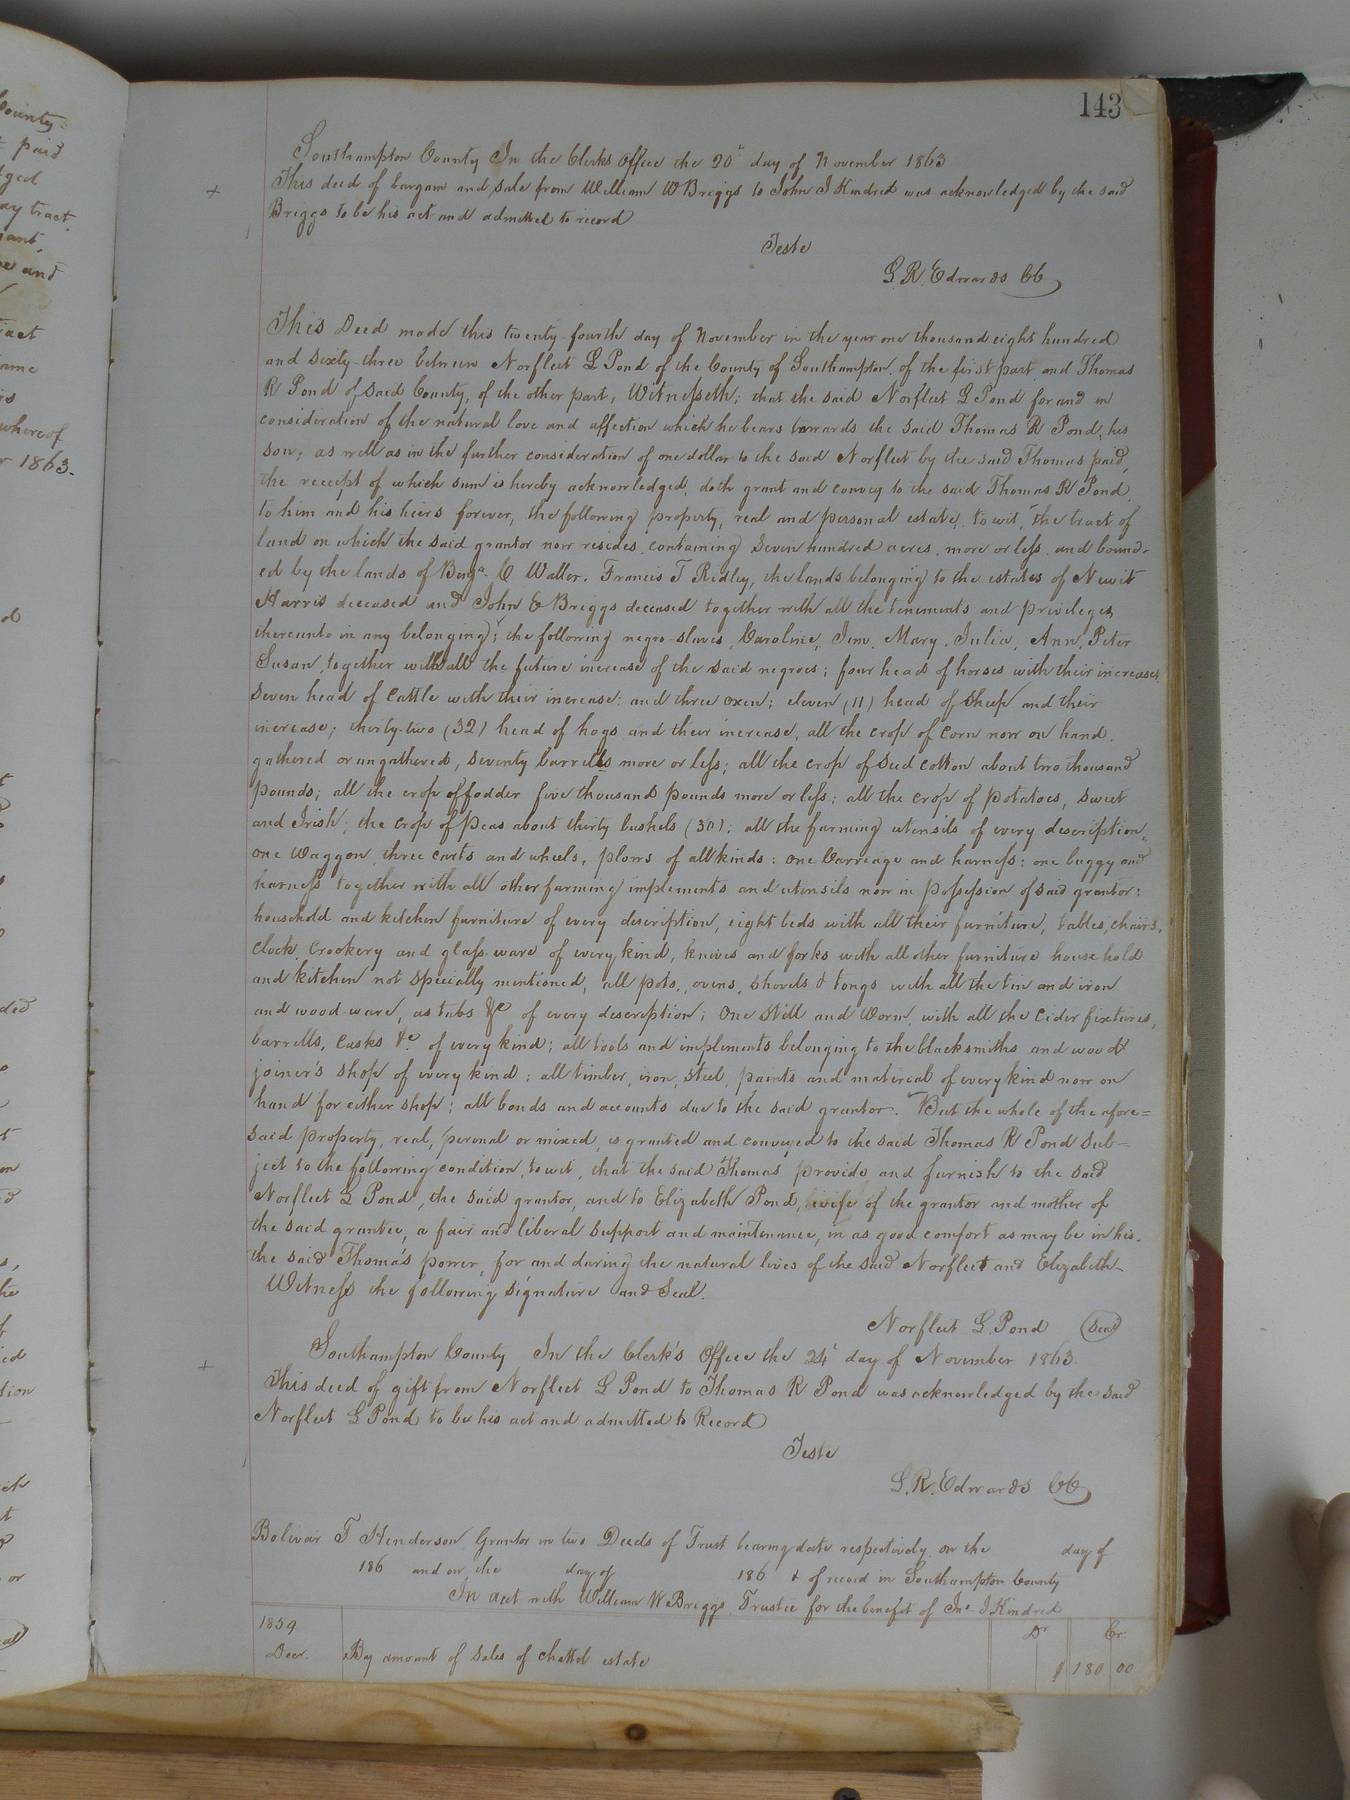 143
Southampton County In the Clerks Office the 20" day of November 1863
This deed of bargain and sale from William W Briggs to John J Kindred was acknowledged by the said
Briggs to be his act and admitted to record
Teste
L. R. Edwards CC
This Deed made this twenty-fourth day of November in the year one thousand eight hundred
and sixty-three between Norfleet L Pond of the County of Southampton of the first part and Thomas
R Pond of said County, of the other part, Witnesseth; that the said Norfleet L Pond for and in
consideration of the natural love and affection which he bears towards the said Thomas R Pond, his
son, as well as in the further consideration of one dollar to the said Norfleet by the said Thomas paid,
the receipt of which sum is hereby acknowledged, doth grant and convey to the said Thomas R Pond,
to him and his heirs forever, the following property, real and personal estate, to wit, the tract of
land on which the said grantor now resides, containing Seven hundred acres, more or less and bound-
ed by the lands of C Waller, Francis T Ridley, the lands belonging to the estates of Newit
Harris deceased and John E Briggs deceased together with all the tenements and privileges
thereunto in any belonging; the following negro slaves, Caroline, Jim, Mary, Julia, Ann, Peter
Susan, together with all the future increase of the said negroes; four head of horses with their increase,
seven head of cattle with their increase; and three oxen; eleven (11) head of sheep and their
increase; thirty-two (32) head of hogs and their increase, all the crop of corn now on hand,
gathered or ungathered, seventy barrells more or less; all the crop of seed cotton about two thousand
pounds; all the crop of fodder five thousand pounds more or less; all the crop of potatoes, sweet
and Irish; the crop of peas about thirty bushels (30); all the farming utensils of every description,
one Waggon, three carts and wheels, plows of all kinds; one Carriage and harness; one buggy and
harness together with all other farming implements and utensils now in possession of said grantor;
household and kitchen furniture of every description, eight beds with all their furniture, tables, chairs,
clock, crockery and glass-ware of every kind, knives and forks with all other furniture household
and kitchen not specially mentioned, all pots, ovens, shovels & tongs with all the tin and iron
and wood-ware, as tubs &c of every description; One Still and Worm, with all the cider fixtures,
barrells, casks &c of every kind; all tools and implements belonging to the blacksmiths and wood
joiner's shop of every kind; all timber, iron, steel, paints and material of every kind now on
hand for either shop; all bonds and accounts due to the said grantor. But the whole of the afore=
said property, real, personal or mixed, is granted and conveyed to the said Thomas R Pond sub=
ject to the following condition, to wit, that the said Thomas, provide and furnish to the said
Norfleet L Pond, the said grantor, and to Elizabeth Pond, wife of the grantor and mother of
the said grantee, a fair and liberal support and maintenance, in as good comfort as may be in his,
the said Thomas's power, for and during the natural lives of the said Norfleet and Elizabeth
Witness the following signature and Seal.
Norfleet L. Pond (Seal)
Southampton County In the Clerk's Office the 24' day of November 1863
This deed of gift from Norfleet L Pond to Thomas R Pond was acknowledged by the said
Norfleet L Pond to be his act and admitted to Record
Teste
L. R. Edwards CC
Bolivar T Henderson Grantor in two Deeds of Trust bearing date respectively on the day of
186 and on the day of 186 & of record in Southampton County
In acct with William W Briggs Trustee for the benefit of Jno J Kindred
1859 Dr Cr.
Decr. By amount of sales of chattel estate $ 180 00